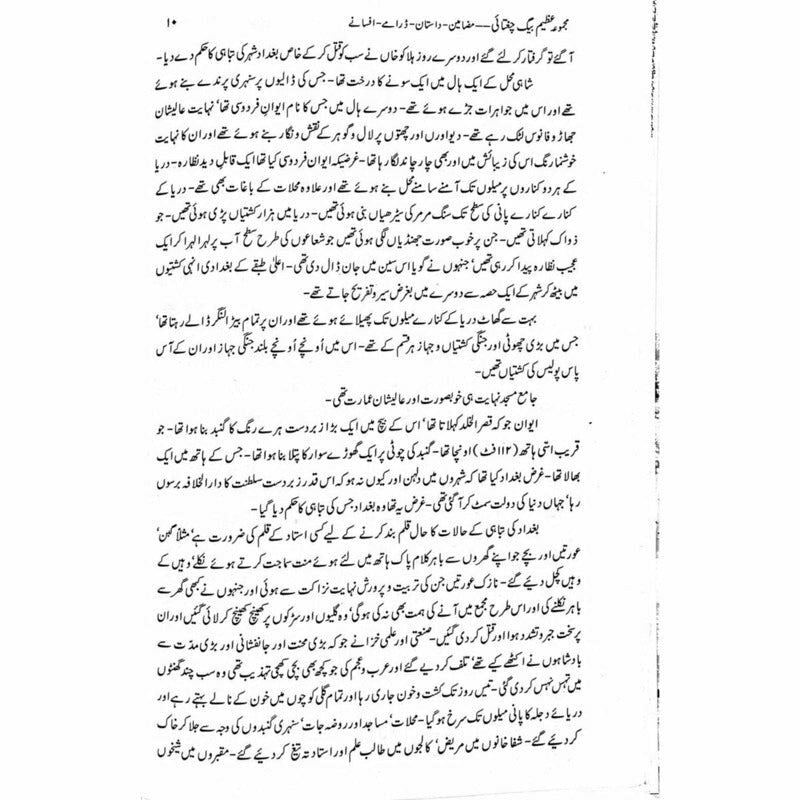 مجموعہ عظیم بیگ چغتائی — مضامین - داستان - ڈرامے - افسانے ۱۰
آگئے تو گرفتار کر لئے گئے اور دوسرے روز ہلاکو خاں نے سب کو قتل کر کے خاص بغداد شہر کی تباہی کا حکم دے دیا -
شاہی محل کے ایک ہال میں ایک سونے کا درخت تھا - جس کی ڈالیوں پر سنہری پرندے بنے ہوئے
تھے اور اس میں جواہرات جڑے ہوئے تھے - دوسرے ہال میں جس کا نام ایوانِ فردوسی تھا‘ نہایت عالیشان
جھاڑ و فانوس لٹک رہے تھے - دیواروں اور چھتوں پر لال و گوہر کے نقش و نگار بنے ہوئے تھے اور ان کا نہایت
خوشنما رنگ اس کی زیبائش میں اور بھی چار چاند لگا رہا تھا - غرضیکہ ایوان فردوسی کیا تھا ایک قابلِ دید نظارہ - دریا
کے ہر دو کناروں پر میلوں تک آمنے سامنے محل بنے ہوئے تھے اور علاوہ محلات کے باغات بھی تھے - دریا کے
کنارے کنارے پانی کی سطح تک سنگ مرمر کی سیڑھیاں بنی ہوئی تھیں - دریا میں ہزار کشتیاں پڑی ہوئی تھیں - جو
ذواک کہلاتی تھیں - جن پر خوب صورت جھنڈیاں لگی ہوئی تھیں جو شعاعوں کی طرح سطح آب پر لہرا لہرا کر ایک
عجیب نظارہ پیدا کر رہی تھیں‘ جنہوں نے گویا اس سین میں جان ڈال دی تھی - اعلیٰ طبقے کے بغدادی انہی کشتیوں
میں بیٹھ کر شہر کے ایک حصہ سے دوسرے میں بغرض سیر و تفریح جاتے تھے -
بہت سے گھاٹ دریا کے کنارے میلوں تک پھیلائے ہوئے تھے اور ان پر تمام بیڑا لنگر ڈالے رہتا تھا‘
جس میں بڑی چھوٹی اور جنگی کشتیاں و جہاز ہر قسم کے تھے - اس میں اُونچے اُونچے بلند جنگی جہاز اور ان کے آس
پاس پولیس کی کشتیاں تھیں -
جامع مسجد نہایت ہی خوبصورت اور عالیشان عمارت تھی -
ایوان جو کہ قصر الخلد کہلاتا تھا‘ اس کے بیچ میں ایک بڑا زبردست ہرے رنگ کا گنبد بنا ہوا تھا - جو
قریب اسّی ہاتھ (۱۱۲ فٹ) اونچا تھا - گنبد کی چوٹی پر ایک گھوڑے سوار کا پتلا بنا ہوا تھا - جس کے ہاتھ میں ایک
بھالا تھا - غرض بغداد کیا تھا کہ شہروں میں دلہن اور کیوں نہ ہو کہ اس قدر زبردست سلطنت کا دارالخلافہ برسوں
رہا‘ جہاں دنیا کی دولت سمٹ کر آگئی تھی - غرض یہ تھا وہ بغداد جس کی تباہی کا حکم دیا گیا -
بغداد کی تباہی کے حالات کا حال قلم بند کرنے کے لیے کسی استاد کے قلم کی ضرورت ہے‘ مثلاً گبن‘
عورتیں اور بچے جو اپنے گھروں سے باہر کلام پاک ہاتھ میں لئے ہوئے منت سماجت کرتے ہوئے نکلے‘ وہیں کے
وہیں کچل دیئے گئے - نازک عورتیں جن کی تربیت و پرورش نہایت نزاکت سے ہوئی اور جنہوں نے کبھی گھر سے
باہر نکلنے کی اور اس طرح مجمع میں آنے کی ہمت بھی نہ کی ہوگی‘ وہ گلیوں اور سڑکوں پر کھینچ کھینچ کر لائی گئیں اور ان
پر سخت جبر و تشدد ہوا اور قتل کر دی گئیں - صنعتی اور علمی خزانے جو کہ بڑی محنت اور جانفشانی اور بڑی مدّت سے
بادشاہوں نے اکٹھے کیے تھے‘ تلف کر دیے گئے اور عرب و عجم کی جو کچھ بھی بچی کھچی تہذیب تھی وہ سب چند گھنٹوں
میں تہس نہس کر دی گئی - تیس روز تک کشت و خون جاری رہا اور تمام گلی کوچوں میں خون کے نالے بہتے رہے اور
دریائے دجلہ کا پانی میلوں تک سرخ ہو گیا - محلات‘ مساجد اور روضہ جات‘ سنہری گنبدوں کی وجہ سے جلا کر خاک
کر دیئے گئے - شفا خانوں میں مریض‘ کالجوں میں طالب علم اور استاد تہ تیغ کر دیئے گئے - مقبروں میں شیخوں